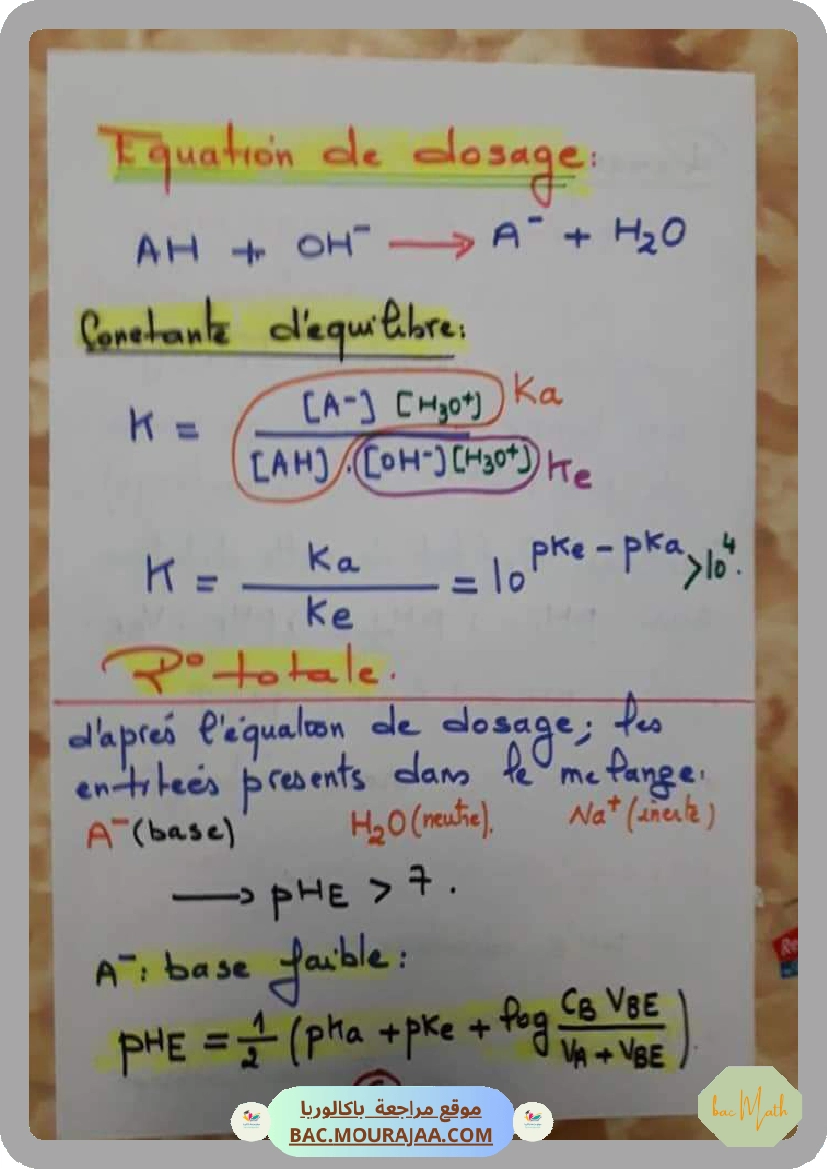 Equation de dosage:
AH + OH⁻ ⟶ A⁻ + H₂O
Constante d'équilibre:
K = [A⁻] [H₃O⁺] / [AH] . [OH⁻] [H₃O⁺] Ka Ke
K = Ka / Ke = 10^(pKe - pKa) > 10⁴.
R° totale.
d'aprés l'équation de dosage; les
entiteés presents dans le melange:
A⁻ (base) H₂O (neutre). Na⁺ (inerte)
⟶ pHE > 7.
A⁻: base faible:
pHE = 1/2 (pKa + pKe + log CB VBE / VA + VBE).
موقع مراجعة باكالوريا
BAC.MOURAJAA.COM
bac Math